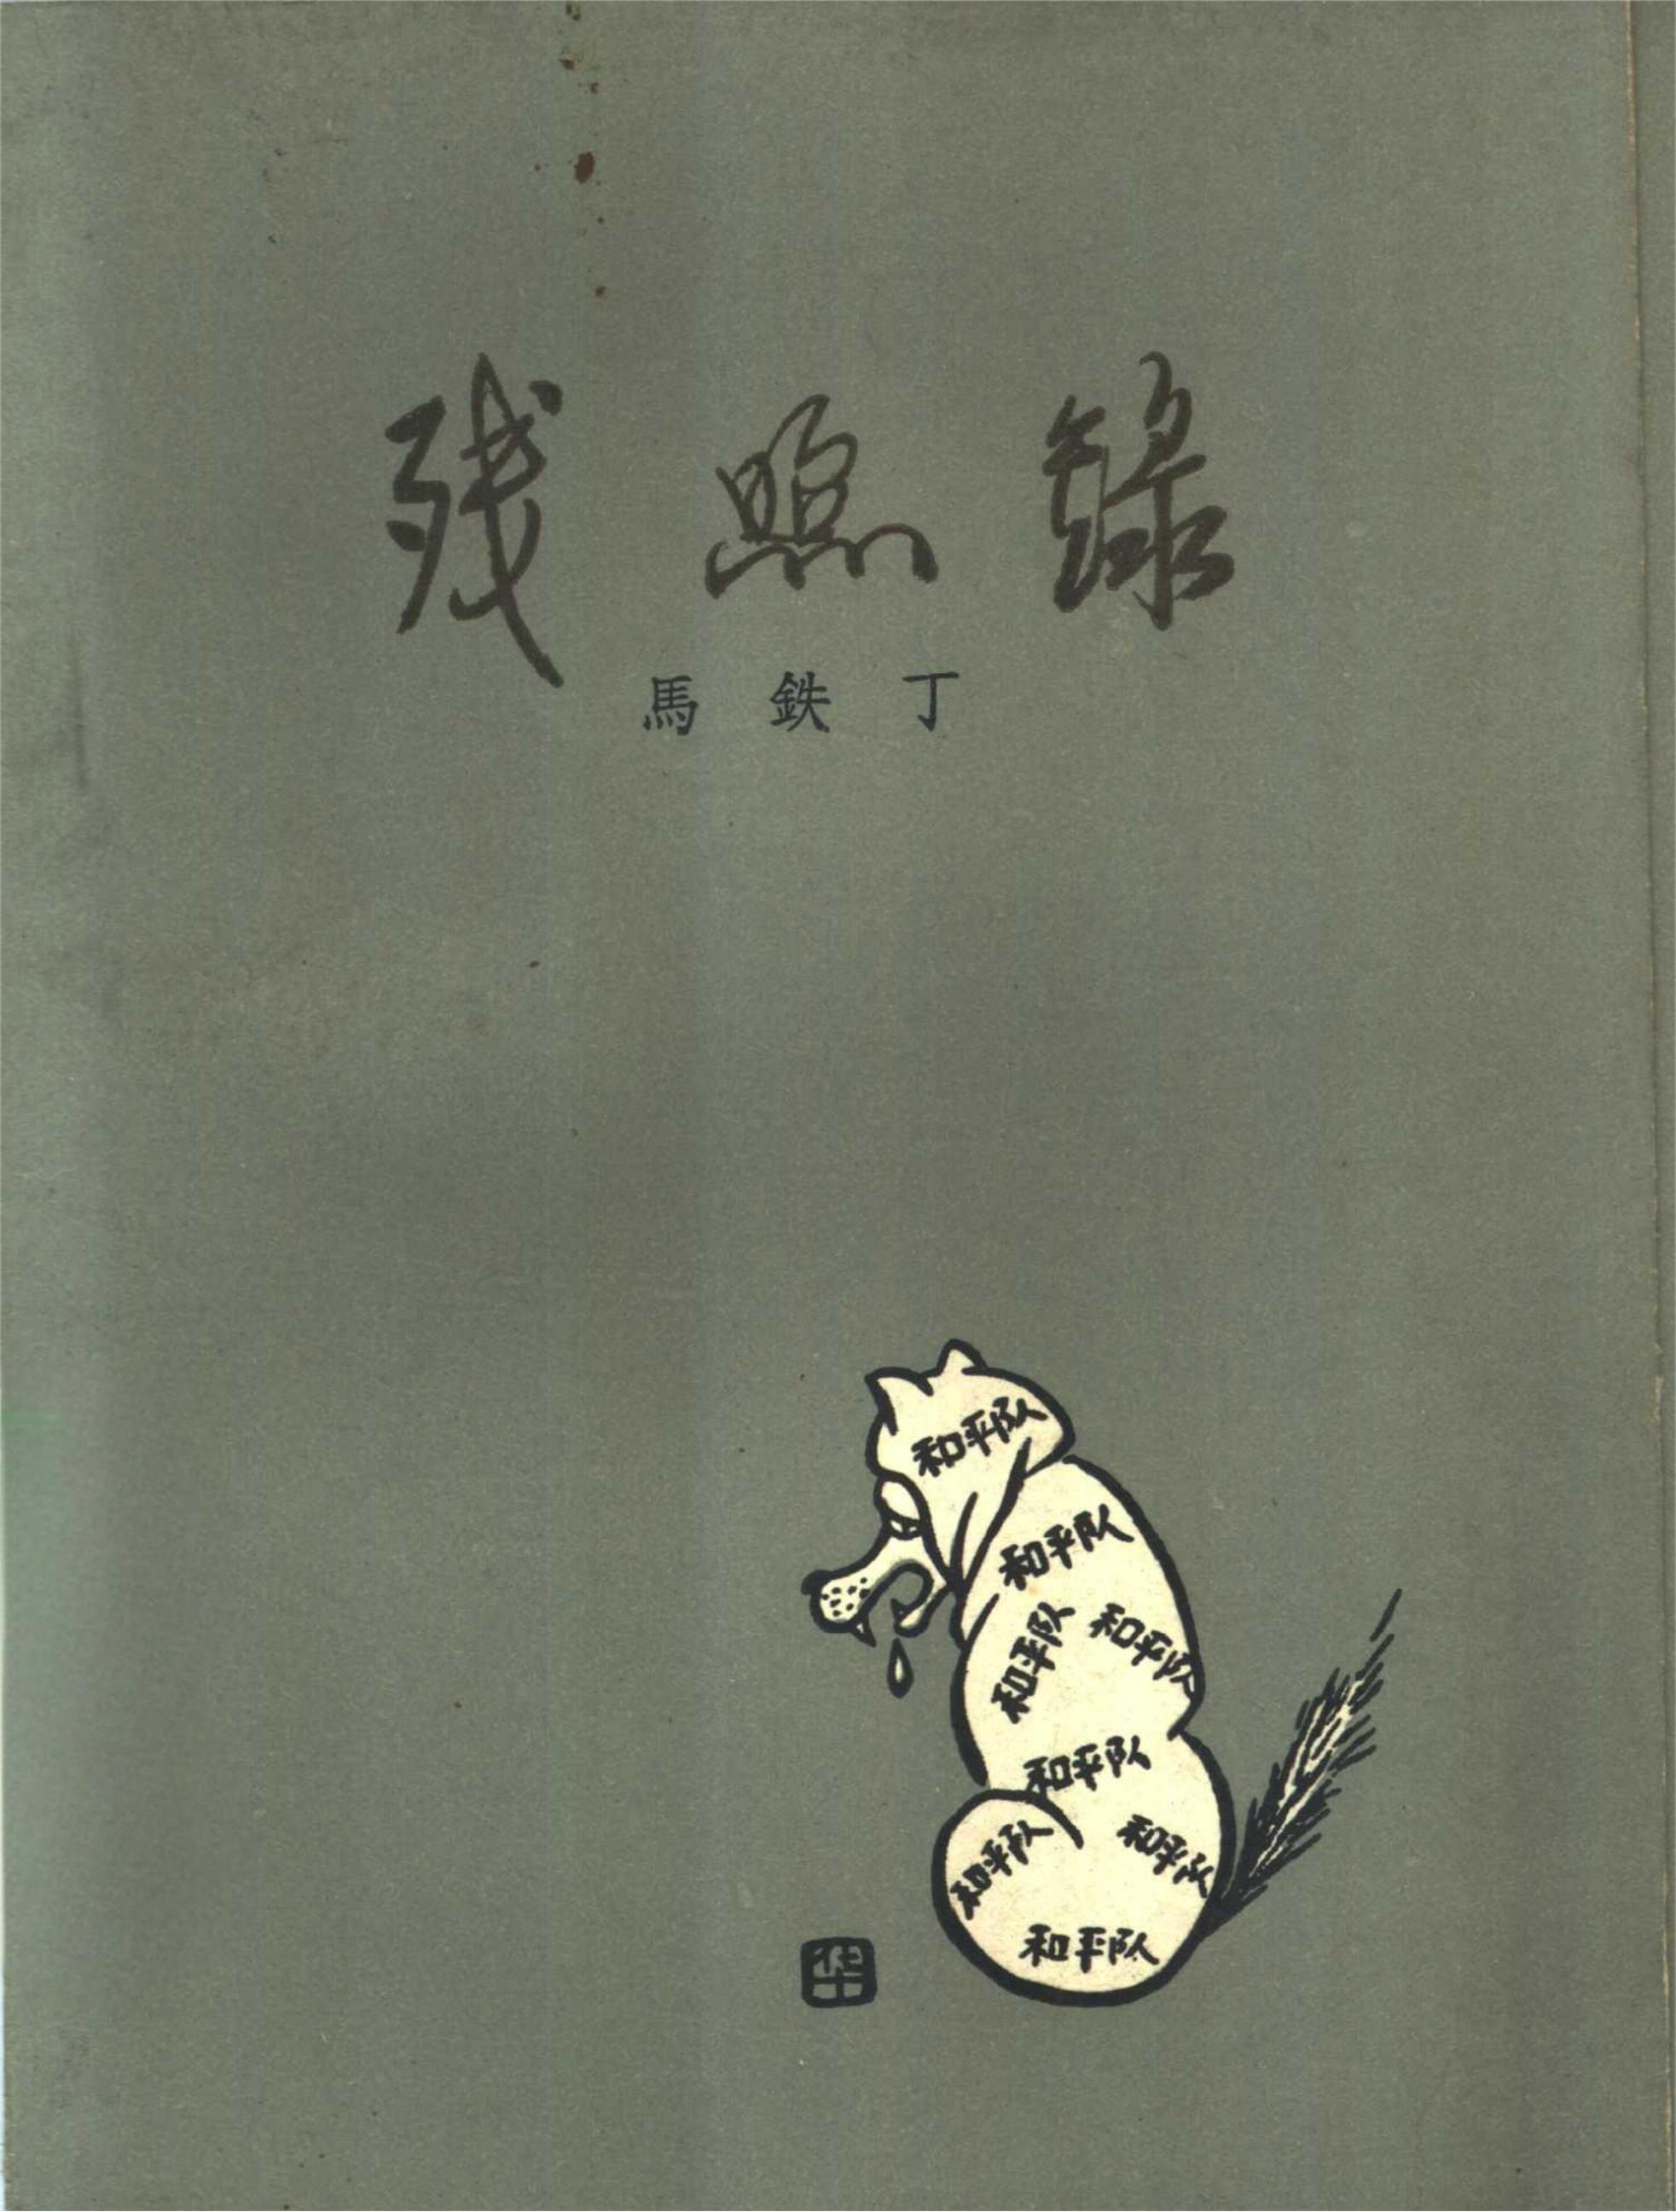 残照錄
馬鉄丁
和平队
和平队
和平队
和平队
和平队
和平队
和平队
和平队
华